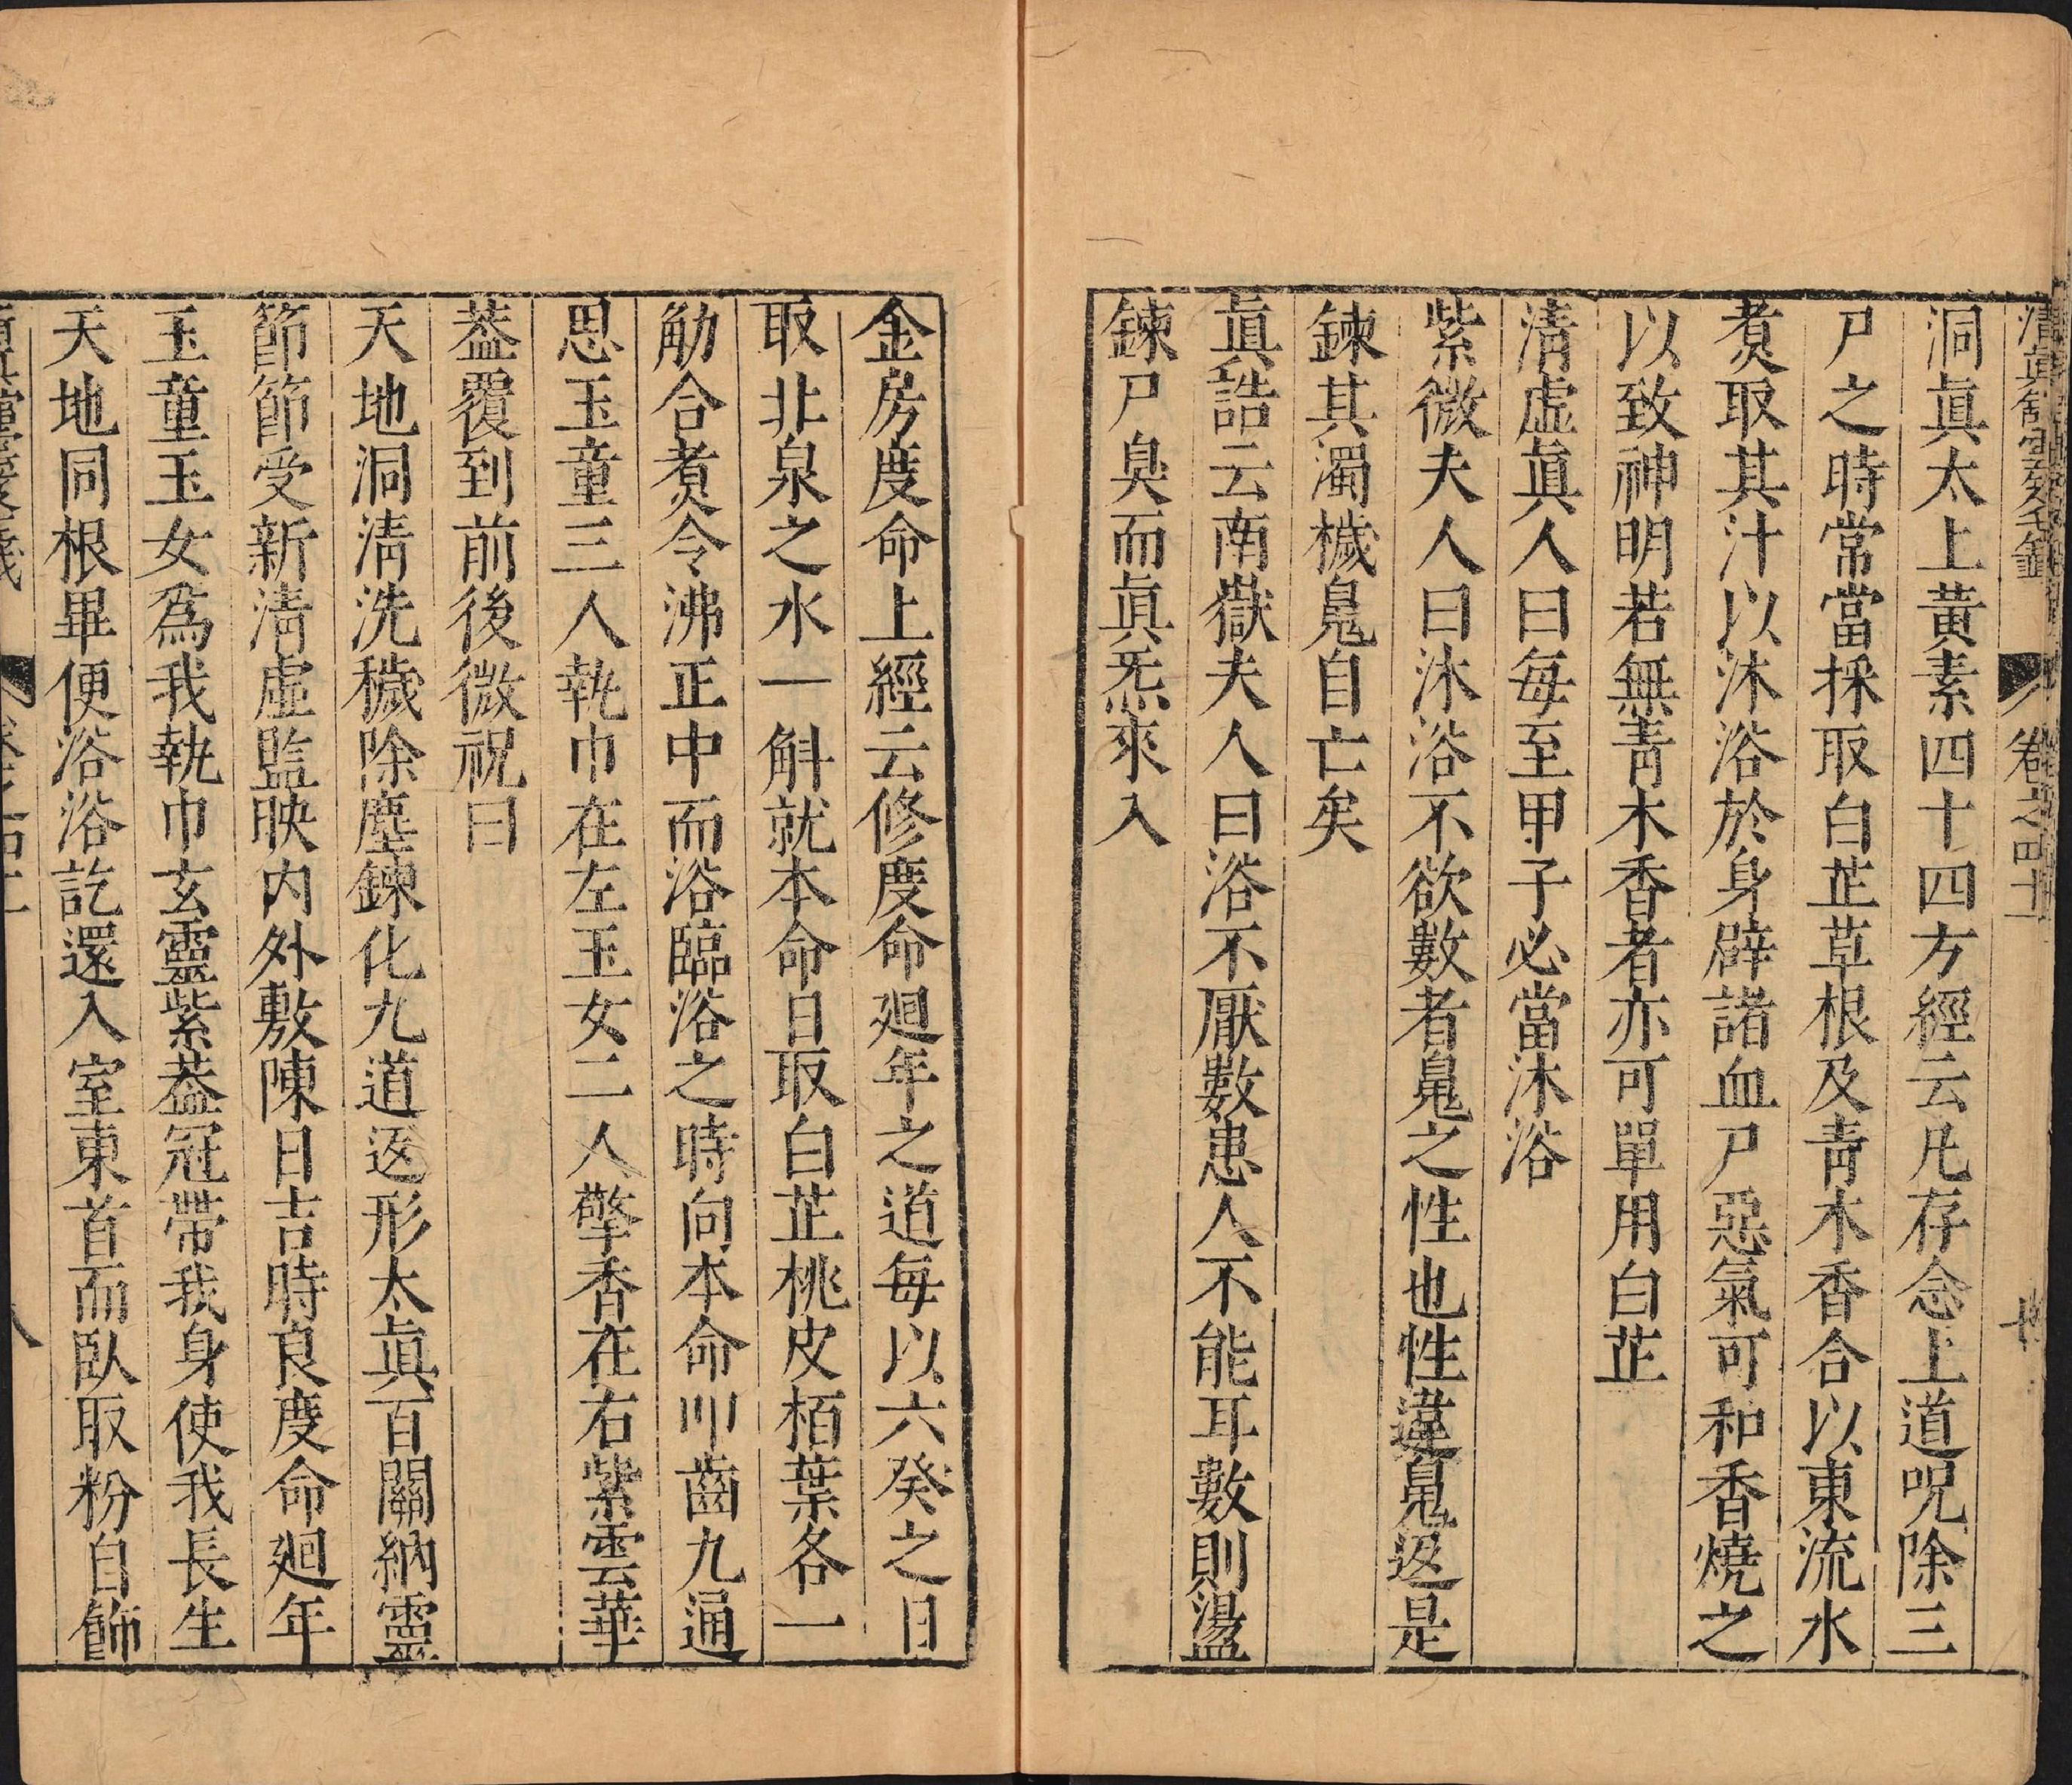 卷之四十
洞眞太上黃素四十四方經云凡存念上道呪除三
尸之時常當採取白芷草根及青木香合以東流水
煮取其汁以沐浴於身辟諸血尸惡氣可和香燒之
以致神明若無青木香者亦可單用白芷
清虛眞人曰每至甲子必當沐浴
紫微夫人曰沐浴不欲數者䰟之性也性違䰟返是
鍊其濁穢䰟自亡矣
眞誥云南嶽夫人曰浴不厭數患人不能耳數則盪
鍊尸臭而眞炁來入
金房度命上經云修度命廻年之道每以六癸之日
取北泉之水一斛就本命日取白芷桃皮栢葉各一
觔合煮令沸正中而浴臨浴之時向本命叩齒九通
思玉童三人執巾在左玉女二人擎香在右紫雲華
葢覆到前後微祝曰
天地洞清洗穢除塵鍊化九道返形太眞百關納靈
節節受新清虛監映內外敷陳日吉時良度命廻年
玉童玉女爲我執巾玄靈紫葢冠帶我身使我長生
天地同根畢便浴浴訖還入室東首而臥取粉自飾
八